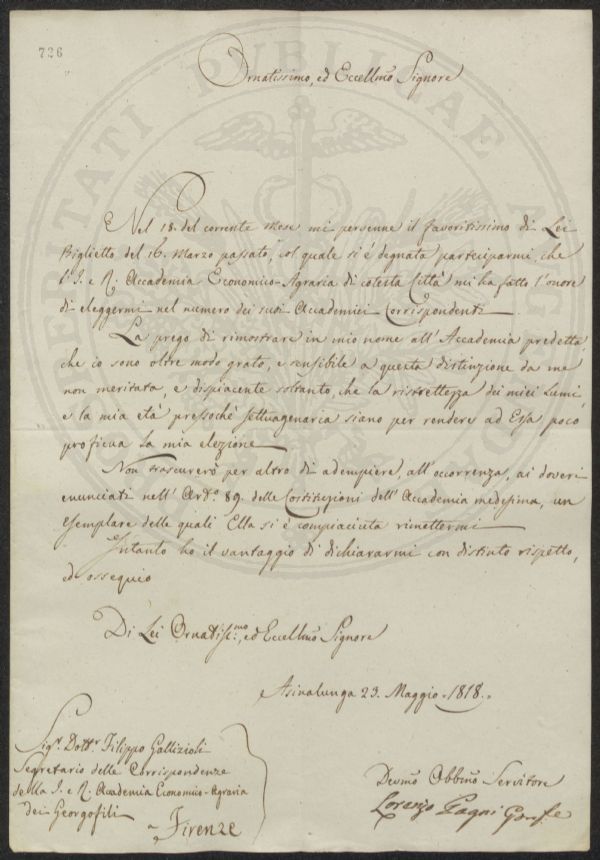 726
Ornatissimo, ed Eccellmo Signore
Nel 18. del corrente Mese mi pervenne il favoritissimo di Lei
Biglietto del 16. Marzo passato, col quale si è degnata parteciparmi, che
l'I. e R. Accademia Economico-Agraria di cotesta Città mi ha fatto l'onore
di eleggermi nel numero dei suoi Accademici Corrispondenti
La prego di rimostrare in mio nome all'Accademia predetta,
che io sono oltre modo grato, e sensibile a questa distinzione da me
non meritata, e dispiacente soltanto, che la ristrettezza dei miei Lumi,
e la mia età pressochè settuagenaria siano per rendere ad Essa poco
proficua la mia elezione
Non trascurerò per altro di adempiere, all'occorrenza, ai doveri
enunciati nell'Ard.o 89. delle Costituzioni dell'Accademia medesima, un
Esemplare delle quali Ella si è compiaciuta rimettermi
Intanto ho il vantaggio di dichiararmi con distinto rispetto,
ed ossequio
Di Lei Ornatiss.mo, ed Eccellmo Signore
Asinalunga 23. Maggio 1818.
Sigr. Dottr Filippo Gallizioli
Segretario delle Corrispondenze
della I. e R. Accademia Economico-Agraria
dei Georgofili
Firenze
Devmo Obbmo Servitore
Lorenzo Pagni
PROSPERITATI PUBLICAE AUGENDAE